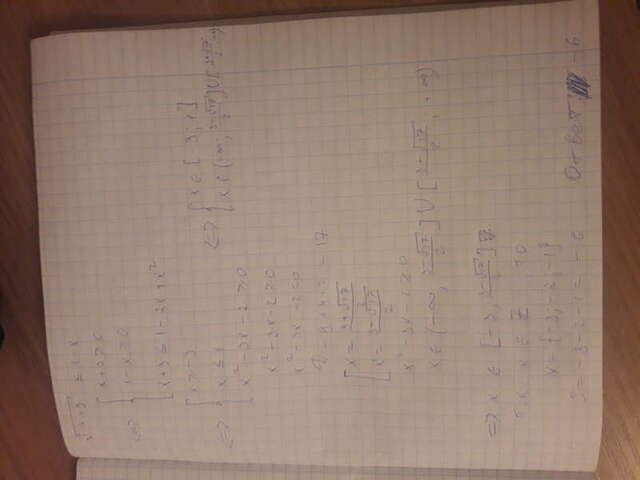 √(x+3) ≤ 1-x
⇔ { x+3 ≥ 0
1-x ≥ 0
x+3 ≤ 1-2x+x²
⇔ { x ≥ -3
x ≤ 1
x²-3x-2 ≥ 0
⇔ { x ∈ [-3; 1]
x ∈ (-∞; (3-√17)/2] ∪ [(3+√17)/2; +∞)
x²-3x-2 ≥ 0
x²-3x-2=0
D = 9+4·2 = 17
[ x = (3+√17)/2
x = (3-√17)/2
x²-3x-2 ≥ 0
x ∈ (-∞, (3-√17)/2] ∪ [(3+√17)/2, +∞)
⇒ x ∈ [-3; (3-√17)/2]
т.к. x ∈ Z то
x = {-3; -2; -1}
S = -3-2-1 = -6
Ответ: -6